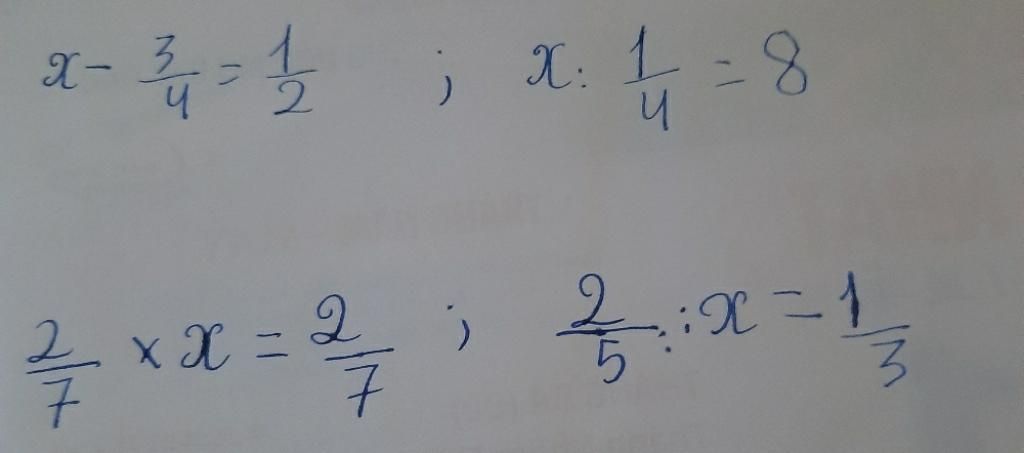 x - 3/4 = 1/2 ; x : 1/4 = 8
2/7 × x = 2/7 ; 2/5 : x = 1/3